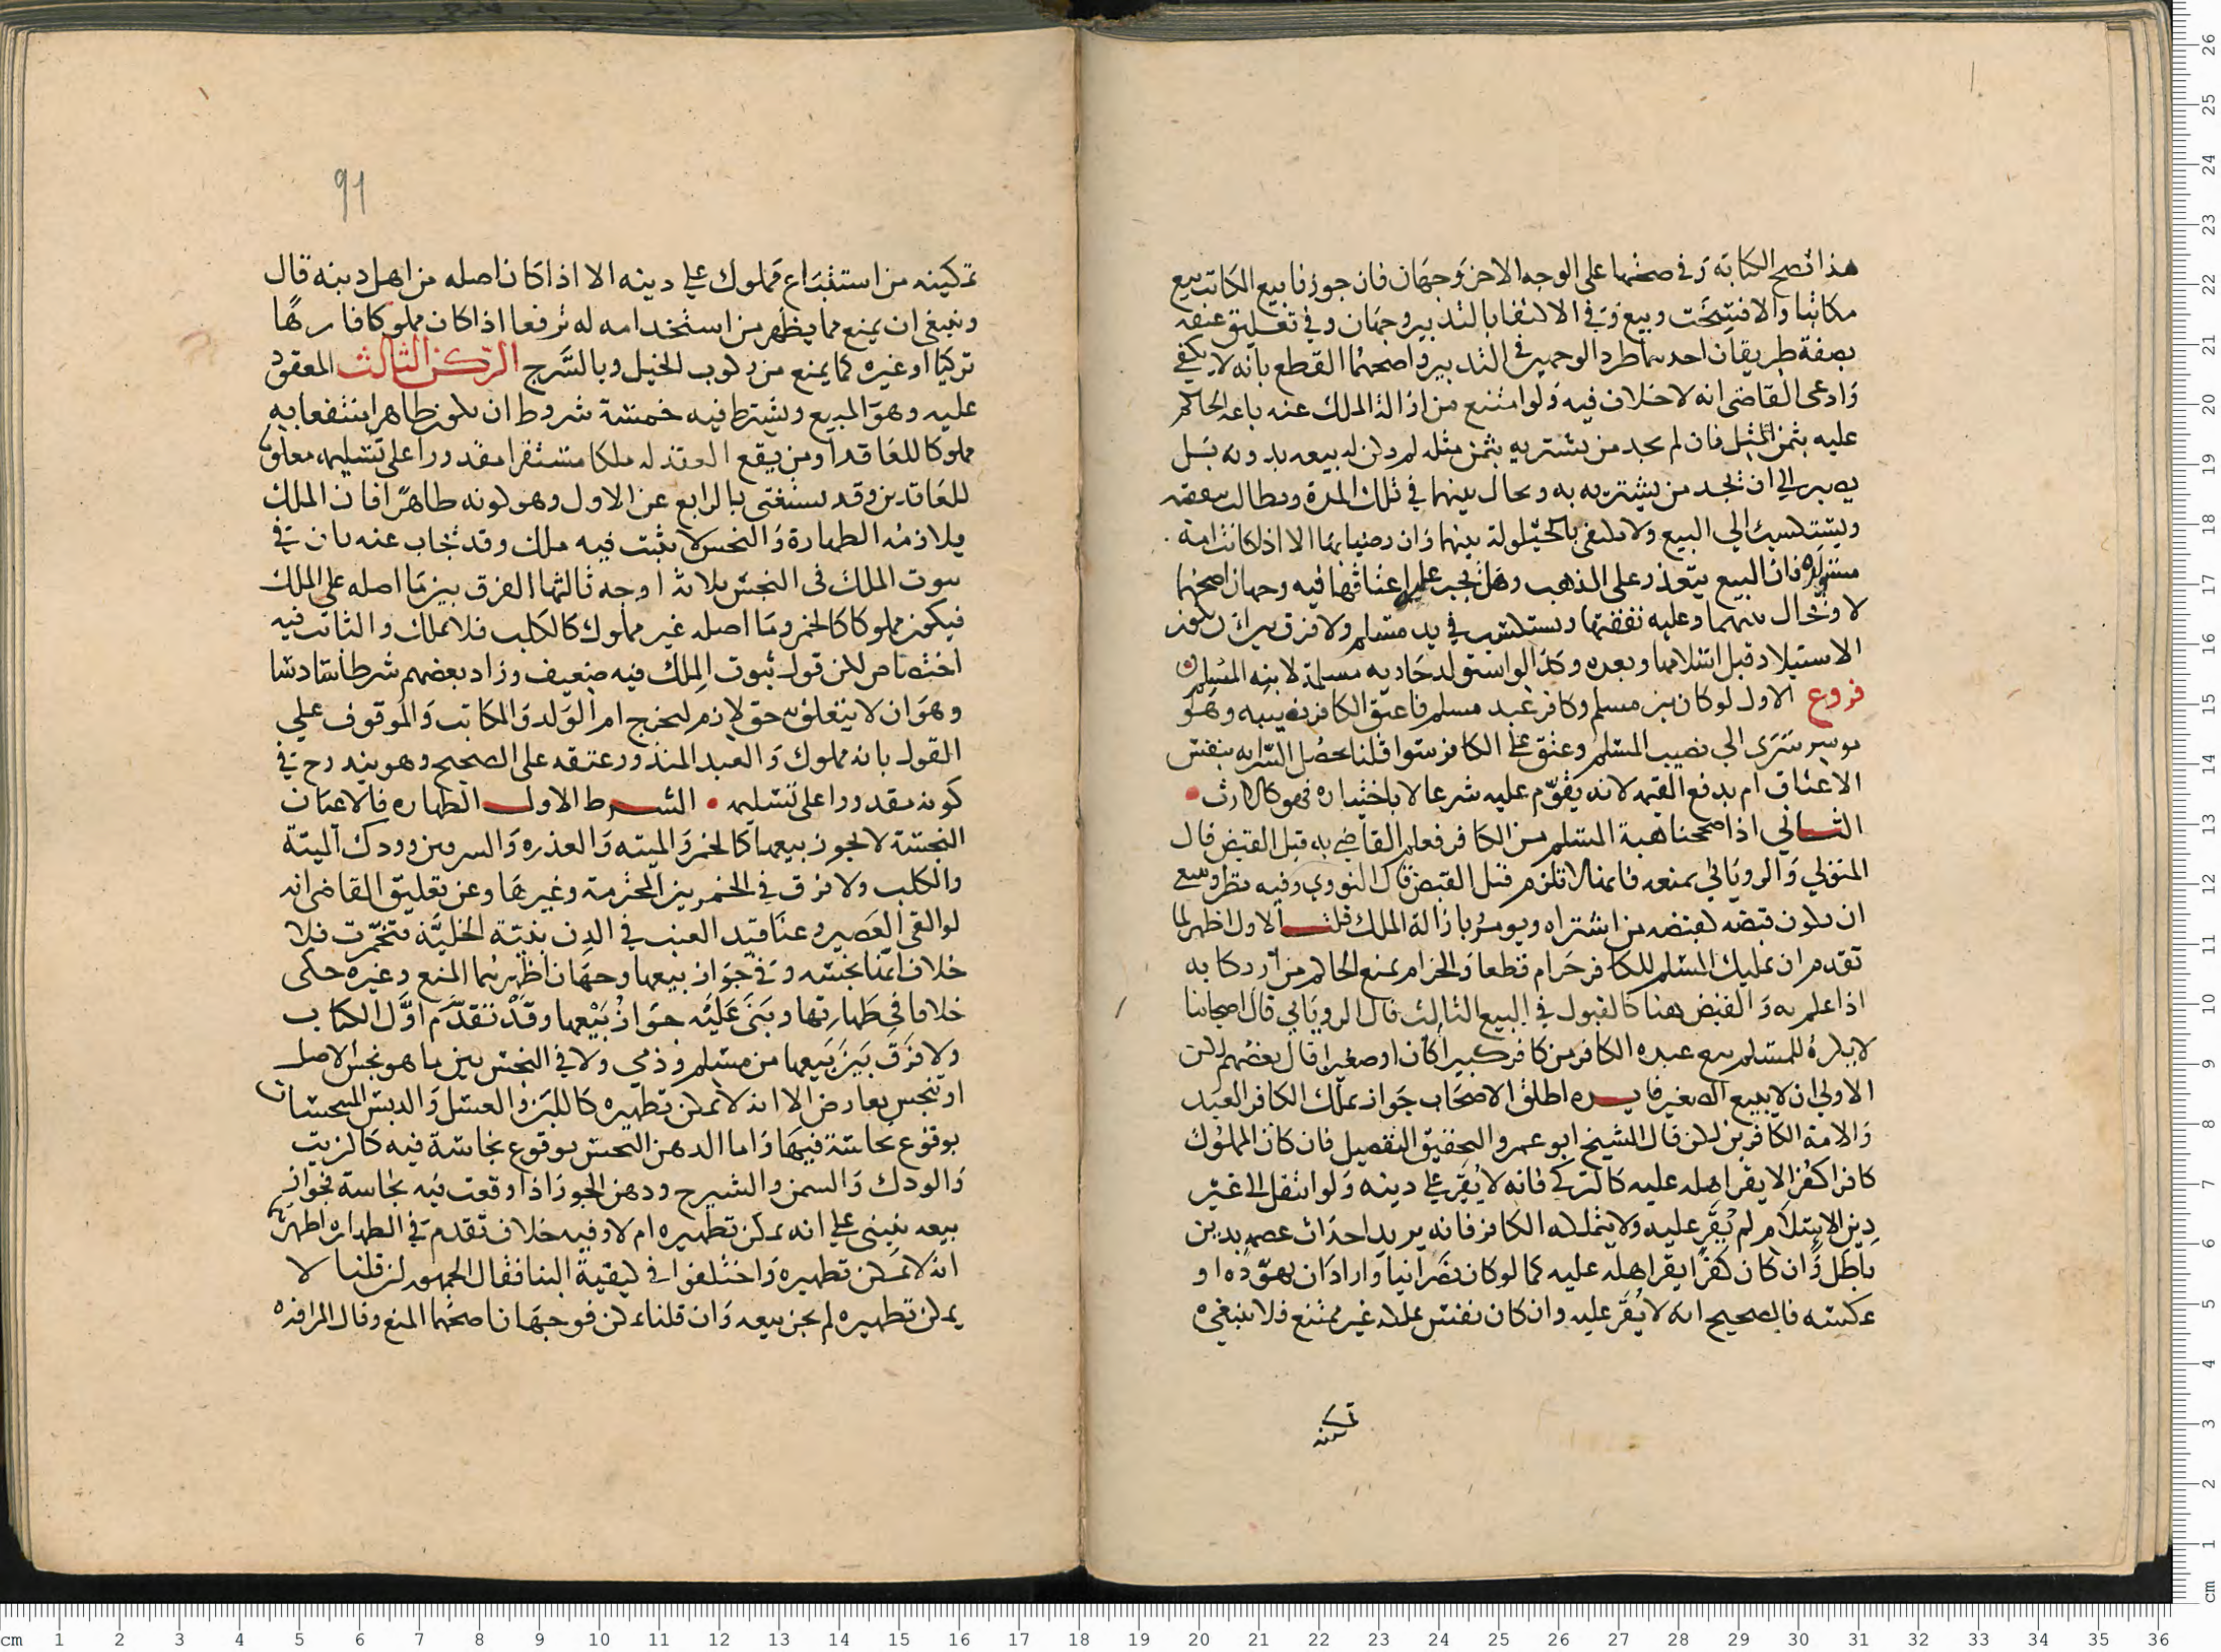 هذا تصح الكتابة وفي صحتها على الوجه الاخر وجهان فان جوزنا بيع الكاتب بيع
مكاتبا والا فسخت وبيع وفي الاكتفا بالتدبير وجهان وفي تعليق عتقه
بصفة طريقان احدهما طرد الوجهين في التدبير واصحهما القطع بانه لا يكفي
وادعى القاضي انه لا خلاف فيه ولو امتنع من ازالة الملك عنه باعه الحاكم
عليه بثمن المثل فان لم يجد من يشتريه بثمن مثله لم يكن له بيعه بدونه بل
يصبر الي ان يجد من يشتريه به ويحال بينهما في تلك المدة ويطالب بنفقته
ويستكسب الي البيع ولا يكتفى بالحيلولة بينهما وان رضيا بها الا اذا كانت امة
مستولدة فان البيع يتعذر على المذهب وهل يجبر على اعتاقها فيه وجهان اصحهما
لا ويحال بينهما وعليه نفقتها وتستكسب في يد مسلم ولا فرق بين ان يكون
الاستيلاد قبل اسلامها وبعده وكذا لو استولد جارية مسلمة لابنه المسلم
فروع الاول لو كان بين مسلم وكافر عبد مسلم فاعتق الكافر نصيبه وهو
موسر سرى الي نصيب المسلم وعتق على الكافر سوا قلنا تحصل السراية بنفس
الاعتاق ام بدفع القيمة لانه يقوم عليه شرعا لا باختياره فهو كالارث
الثاني اذا صححنا هبة المسلم من الكافر فعلم القاضي به قبل القبض قال
المتولي والروياني يمنعه فانها لا تلزم قبل القبض قال النووي وفيه نظر وينبغي
ان يكون قبضه كقبضه من اشتراه ويومر بازالة الملك قلت الاول اظهر لما
تقدم ان تمليك المسلم للكافر حرام قطعا والحرام يمنع الحاكم من ارتكابه
اذا علم به والقبض هنا كالقبول في البيع الثالث قال الروياني قال اصحابنا
لا يكره للمسلم بيع عبده الكافر من كافر كبيرا كان او صغيرا قال بعضهم لكن
الاولي ان لا يبيع الصغير فايده اطلق الاصحاب جواز تملك الكافر العبد
والامة الكافرين لكن قال الشيخ ابو عمرو التحقيق التفصيل فان كان المملوك
كافرا كفرا لا يقر اهله عليه كالتركي فانه لا يقر علي دينه ولو انتقل الي غير
دين الاسلام لم يقر عليه ولا يتملكه الكافر فانه يريد احداث عصمة بدين
باطل وان كان كفرا يقر اهله عليه كما لو كان نصرانيا واراد ان يهوده او
عكسه فالصحيح انه لا يقر عليه وان كان نفس تملكه غير ممتنع فلا ينبغي
تمكينه
91
تمكينه من استتباع مملوك علي دينه الا اذا كان اصله من اهل دينه قال
وينبغي ان يمنع مما يظهر من استخدامه له ترفعا اذا كان مملوكا فارها
تركيا او غيره كما يمنع من ركوب الخيل وبالسرج الركن الثالث المعقود
عليه وهو المبيع ويشترط فيه خمسة شروط ان يكون طاهرا منتفعا به
مملوكا للعاقد او من يقع العقد له ملكا مستقرا مقدورا على تسليمه معلوما
للعاقدين وقد يستغني بالرابع عن الاول وهو كونه طاهرا فان الملك
يلازمه الطهارة والنجس لا يثبت فيه ملك وقد يجاب عنه بان في
ثبوت الملك في النجس ثلاثة اوجه ثالثها الفرق بين ما اصله على الملك
فيكون مملوكا كالخمر وما اصله غير مملوك كالكلب فلا يملك والثابت فيه
اختصاص لكن قول ثبوت الملك فيه ضعيف وزاد بعضهم شرطا سادسا
وهو ان لا يتعلق به حق لازم ليخرج ام الولد والمكاتب والموقوف علي
القول بانه مملوك والعبد المنذور عتقه على الصحيح وهو يندرج في
كونه مقدورا على تسليمه الشرط الاول الطهاره فالاعيان
النجسة لا يجوز بيعها كالخمر والميته والعذره والسرجين وودك الميتة
والكلب ولا فرق في الخمر بين المحترمة وغيرها وعن تعليق القاضي انه
لو القى العصير وعناقيد العنب في الدن بنية الخلية فتخمرت فلا
خلاف انها نجسه وفي جواز بيعها وجهان اظهرهما المنع وغيره حكى
خلافا في طهارتها وبنى عليه جواز بيعها وقد تقدم اول الكتاب
ولا فرق بين بيعها من مسلم وذمي ولا في النجس بين ما هو نجس الاصل
او تنجس بعارض الا انه لا يمكن تطهيره كاللبن والعسل والدبس المنجسات
بوقوع نجاسة فيها واما الدهن النجس بوقوع نجاسة فيه كالزيت
والودك والسمن والشيرج ودهن الجوز اذا وقعت فيه نجاسة فجواز
بيعه ينبني علي انه يمكن تطهيره ام لا وفيه خلاف تقدم في الطهاره اظهرهما
انه لا يمكن تطهيره واختلفوا في كيفية البنا فقال الجمهور ان قلنا لا
يمكن تطهيره لم يجز بيعه وان قلنا يمكن فوجهان اصحهما المنع وقال المراوزه